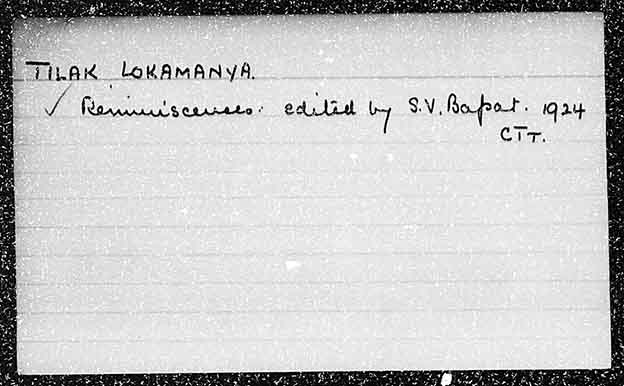 TILAK LOKAMANYA.
✓ Reminiscences: edited by S.V. Bapat. 1924
CTT.